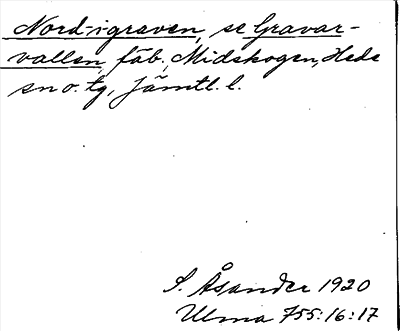 Nord-i graven, se Gravar-
vallen, fäb., Midskogen, Hede
sn o. tg, Jämtl. l.
S. Åsander 1920
Ulma 755:16:17